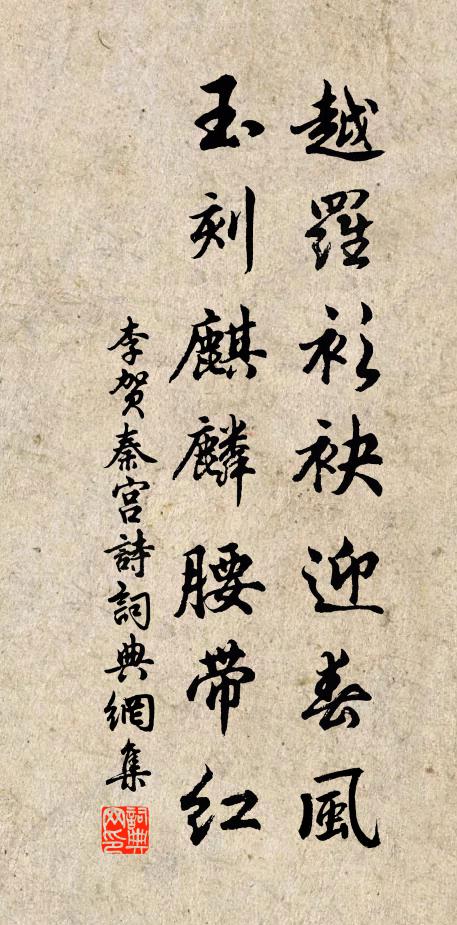 越羅衫袂迎春風
玉刻麒麟腰帶紅
李賀秦宮詩詞典網集
詞典網印